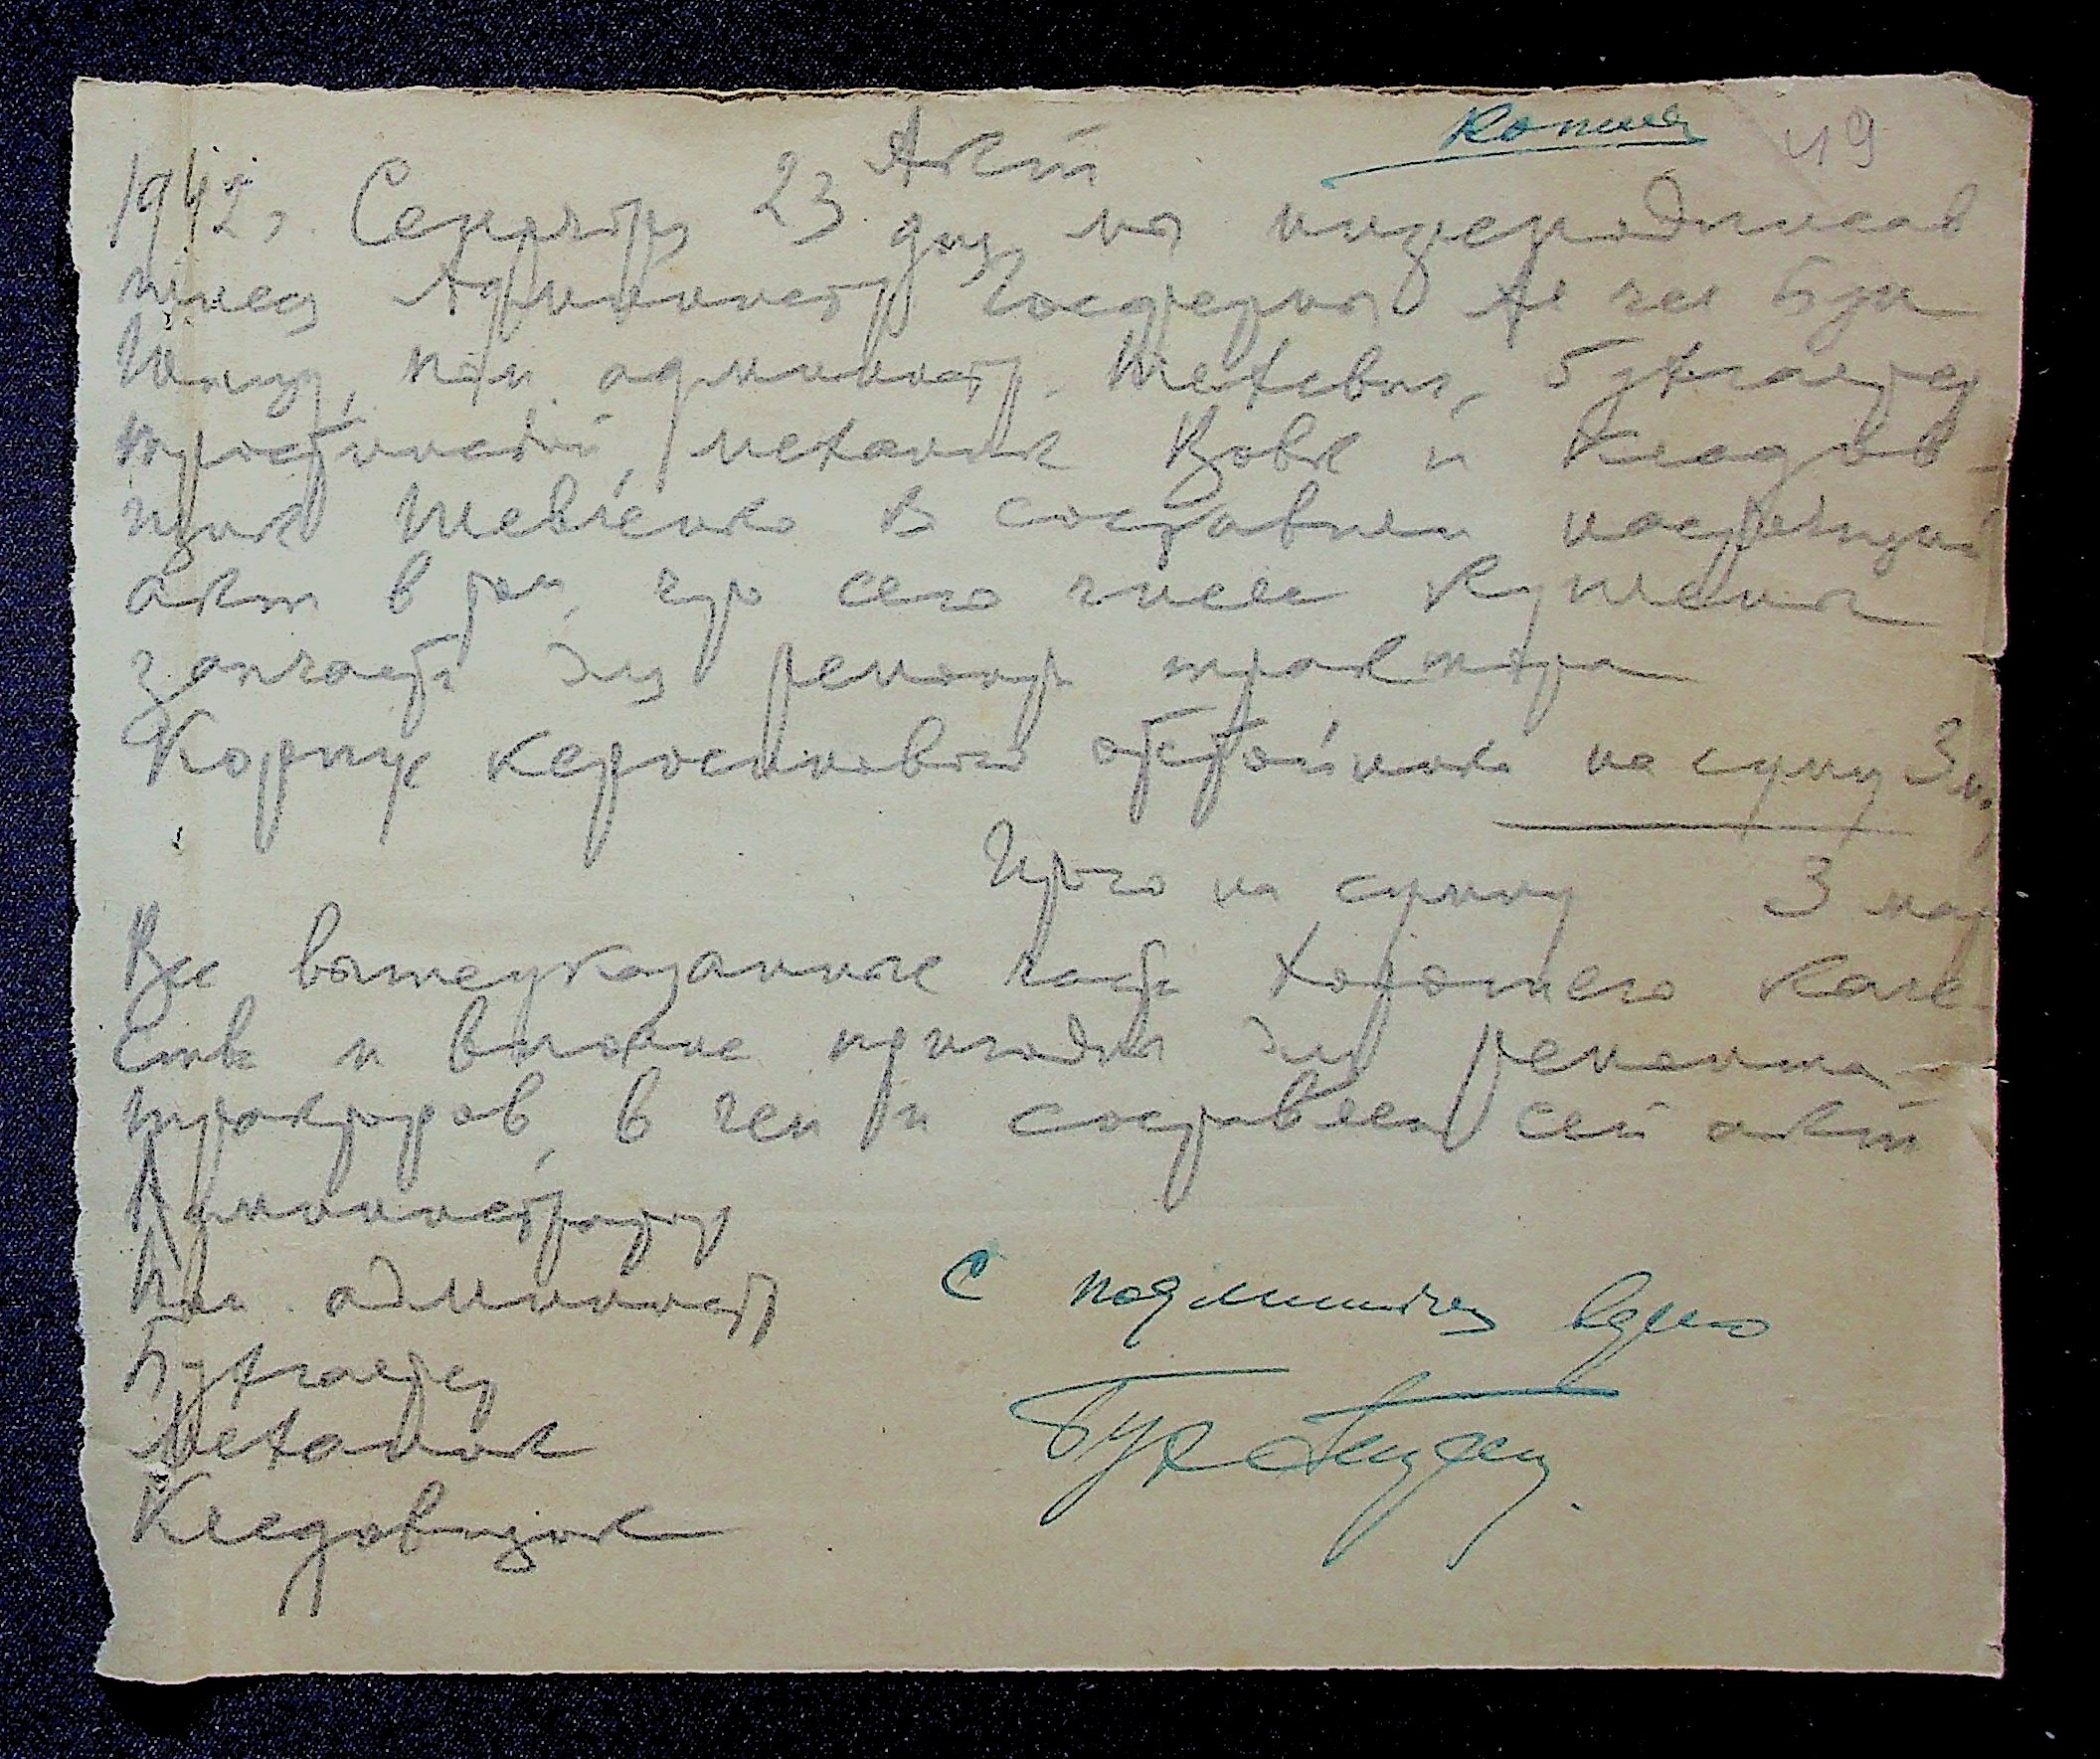 Копия
49
Акт
1942 г. Сентября 23 дня мы нижеподписав
шиеся Администр Госфермы № Бузи
пом. администр. Шетевич, бухгалтер
механик Вовк и Кладов-
щик Шевченко В составили настоящий
акт в том, что сего числа куплены
запчасти для ремонта трактора
Корпус керосиновый отстойника на суму 3 м,
Итого на сумму 3 мар
Все вышеуказанные части хорошего каче-
ства и вполне пригодны для ремонта
тракторов, в чем и составлен сей акт
Администратор
Пом. администр
Бухгалтер
Механик
Кладовщик
С подлинным верно
Бух